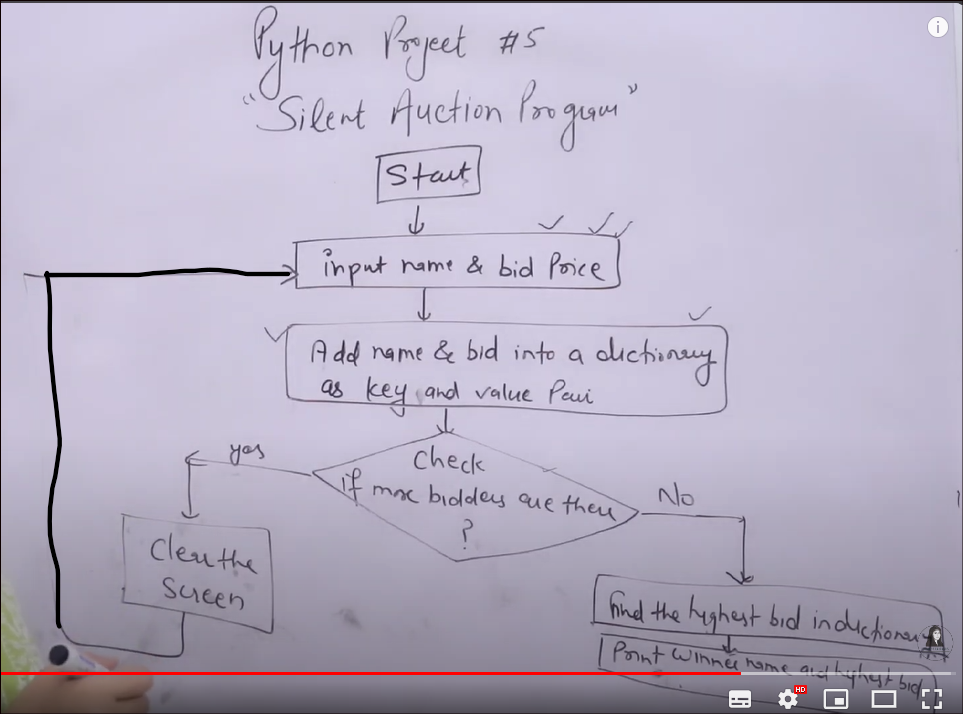 Python Project #5
"Silent Auction Program"
Start
input name & bid Price
Add name & bid into a dictionary
as key and value Pair
Check
if more bidders are there
?
yes
No
Clear the
screen
find the highest bid in dictionary
Print winner name and highest bid
HD